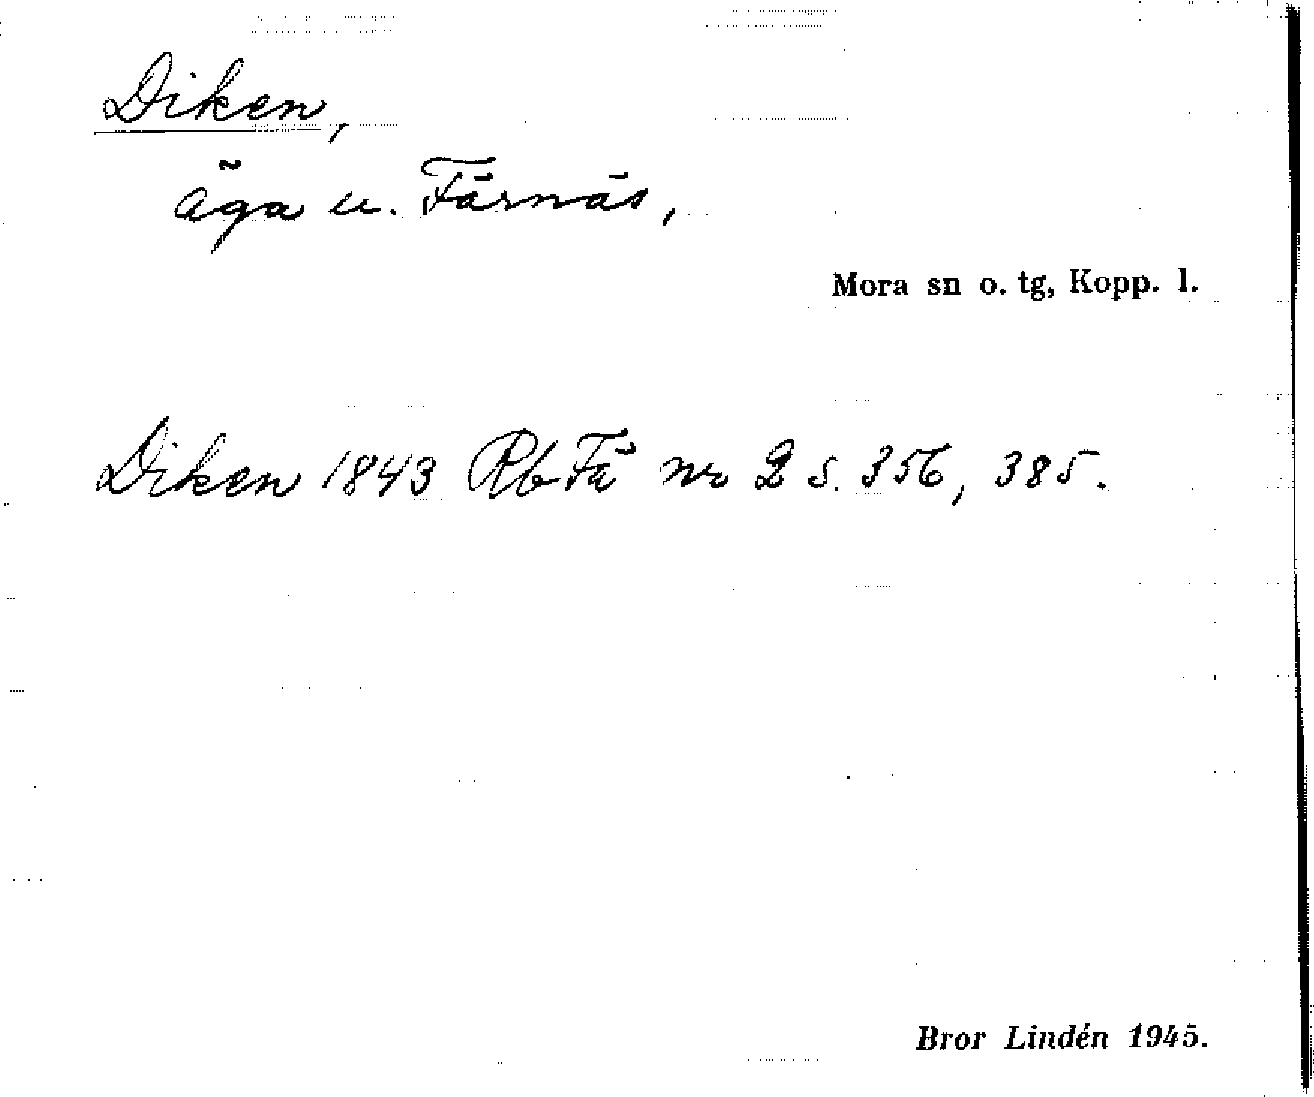 Diken,
äga u. Färnäs,
Mora sn o. tg, Kopp. l.
Diken 1843 Rb Fä nr 2 s. 356, 385.
Bror Lindén 1945.